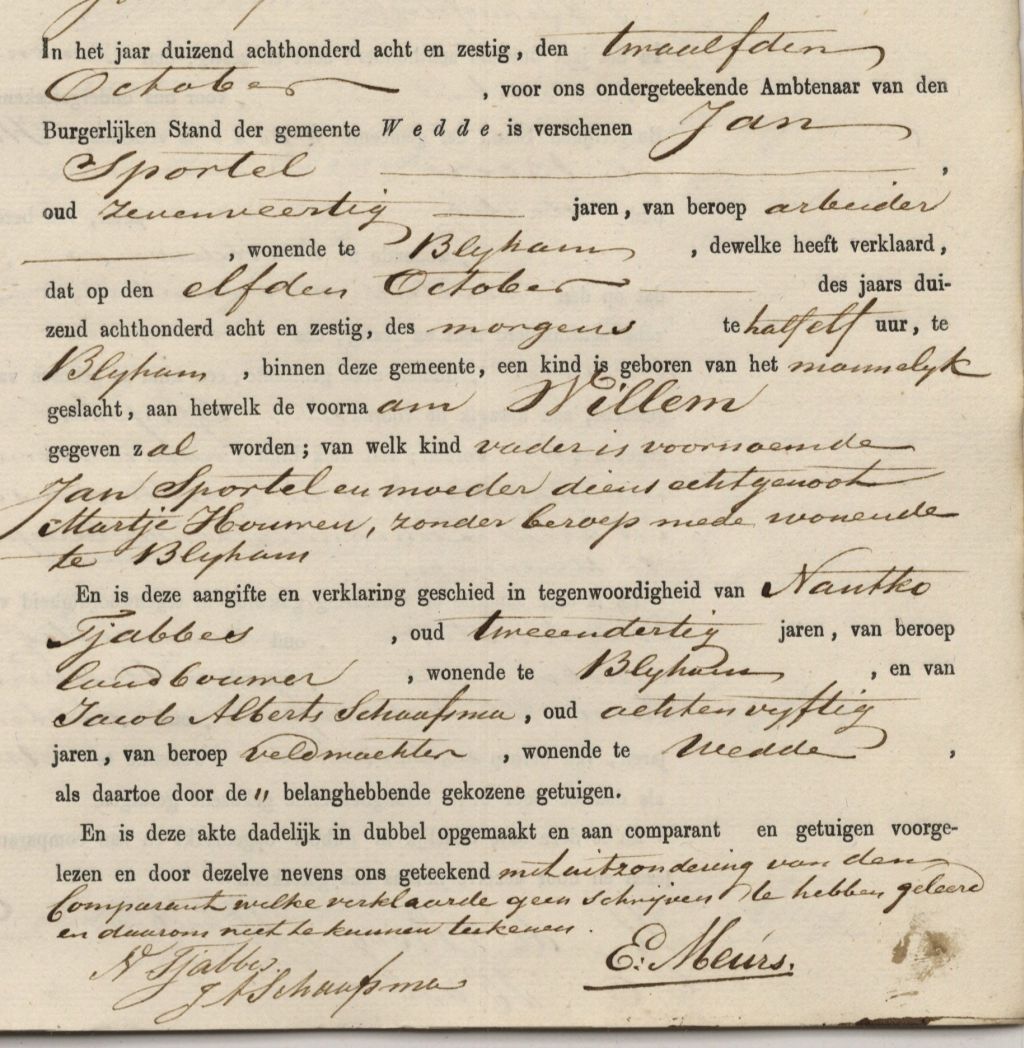 In het jaar duizend achthonderd acht en zestig, den twaalfden
October , voor ons ondergeteekende Ambtenaar van den
Burgerlijken Stand der gemeente Wedde is verschenen Jan
Sportel ,
oud zevenveertig jaren, van beroep arbeider
, wonende te Blyham , dewelke heeft verklaard,
dat op den elfden October des jaars dui-
zend achthonderd acht en zestig, des morgens te half elf uur, te
Blyham , binnen deze gemeente, een kind is geboren van het mannelyk
geslacht, aan hetwelk de voornaam Willem
gegeven zal worden; van welk kind vader is voornoemde
Jan Sportel en moeder diens echtgenoot
Martje Houwen, zonder beroep mede wonende
te Blyham
En is deze aangifte en verklaring geschied in tegenwoordigheid van Nantko
Tjabbes , oud tweeendertig jaren, van beroep
landbouwer , wonende te Blyham , en van
Jacob Alberts Schaafsma , oud achtenvyftig
jaren, van beroep veldwachter , wonende te Wedde ,
als daartoe door de " belanghebbende gekozene getuigen.
En is deze akte dadelijk in dubbel opgemaakt en aan comparant en getuigen voorge-
lezen en door dezelve nevens ons geteekend met uitzondering van den
Comparant welke verklaarde geen schrijven te hebben geleerd
en daarom niet te kunnen teekenen.
N Tjabbes
J A Schaafsma
E. Meurs.